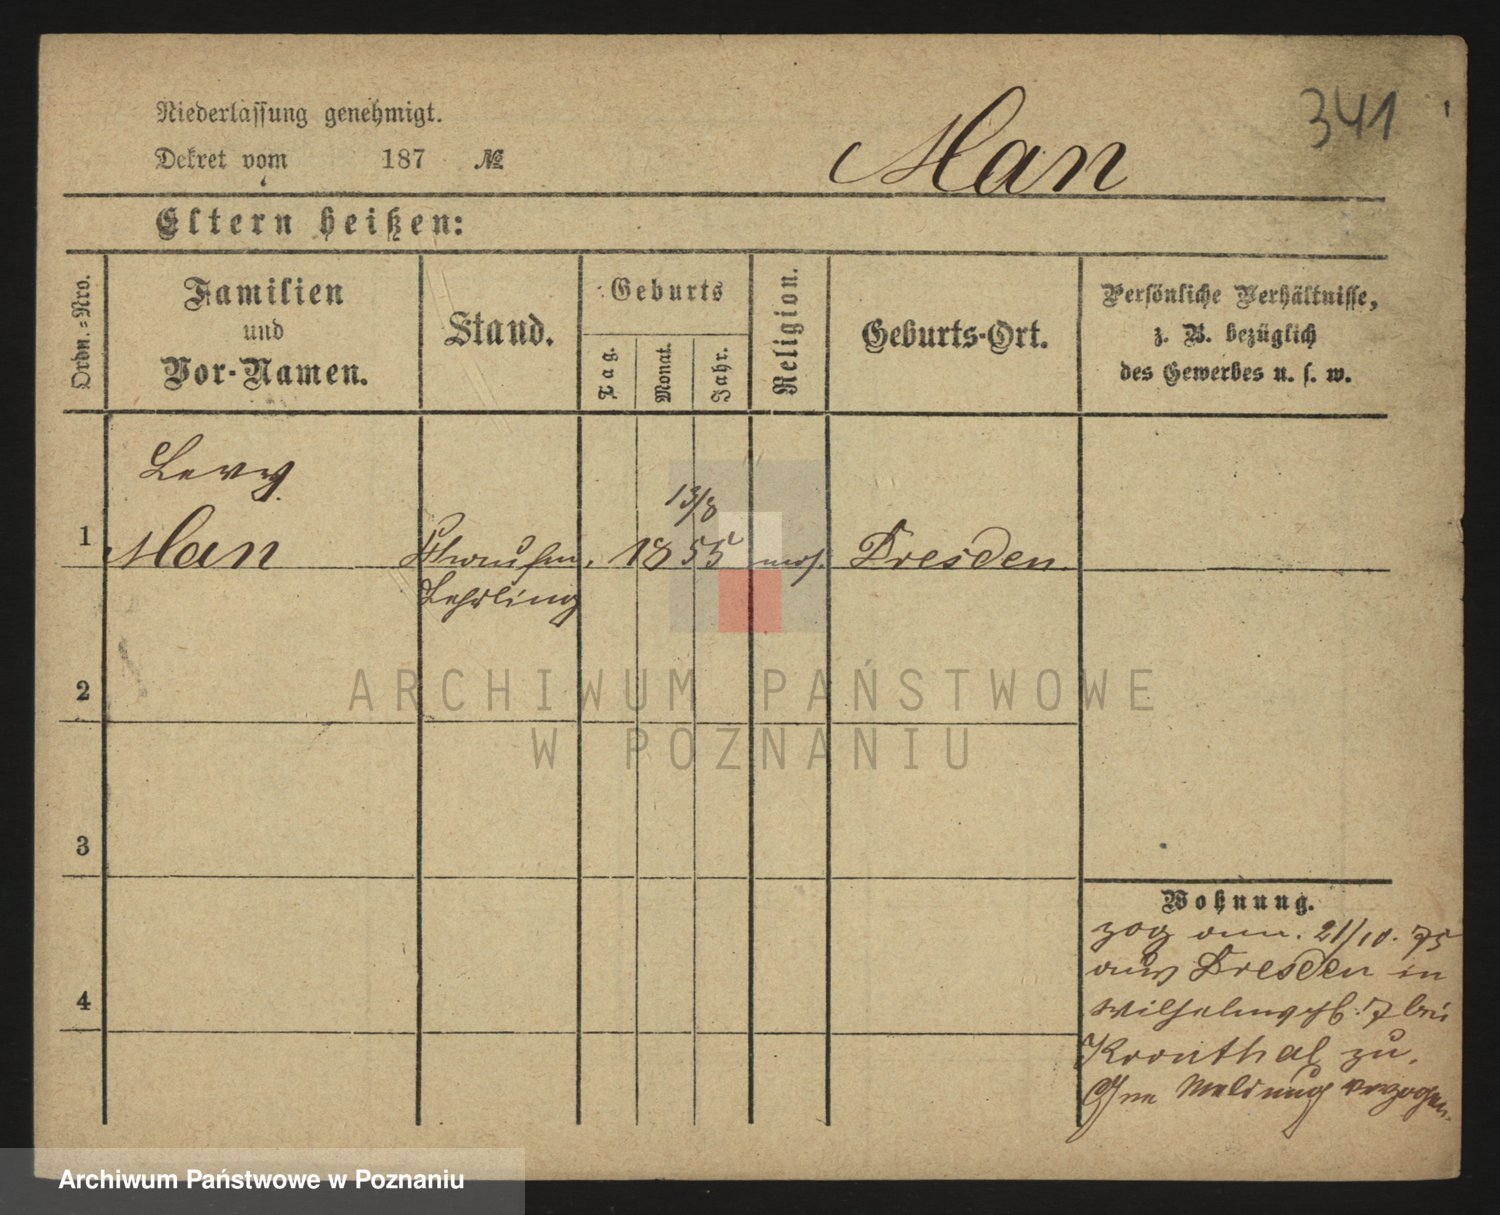 341
Niederlassung genehmigt.
Dekret vom 187 №
Man
Eltern heißen:
Ordn.=Nro.
Familien
und
Vor-Namen.
Stand.
Geburts
Tag.
Monat.
Jahr.
Religion.
Geburts-Ort.
Persönliche Verhältnisse,
z. B. bezüglich
des Gewerbes u. s. w.
Levy
13/8
1 Man 1855 mos. Dresden.
Lehrling
2
3
4
Wohnung.
zog am. 21/10. 75
aus Dresden in
Wilhelmspl. 7 bei
Kronthal zu.
Ohne Meldung verzogen.
ARCHIWUM PAŃSTWOWE
W POZNANIU
Archiwum Państwowe w Poznaniu